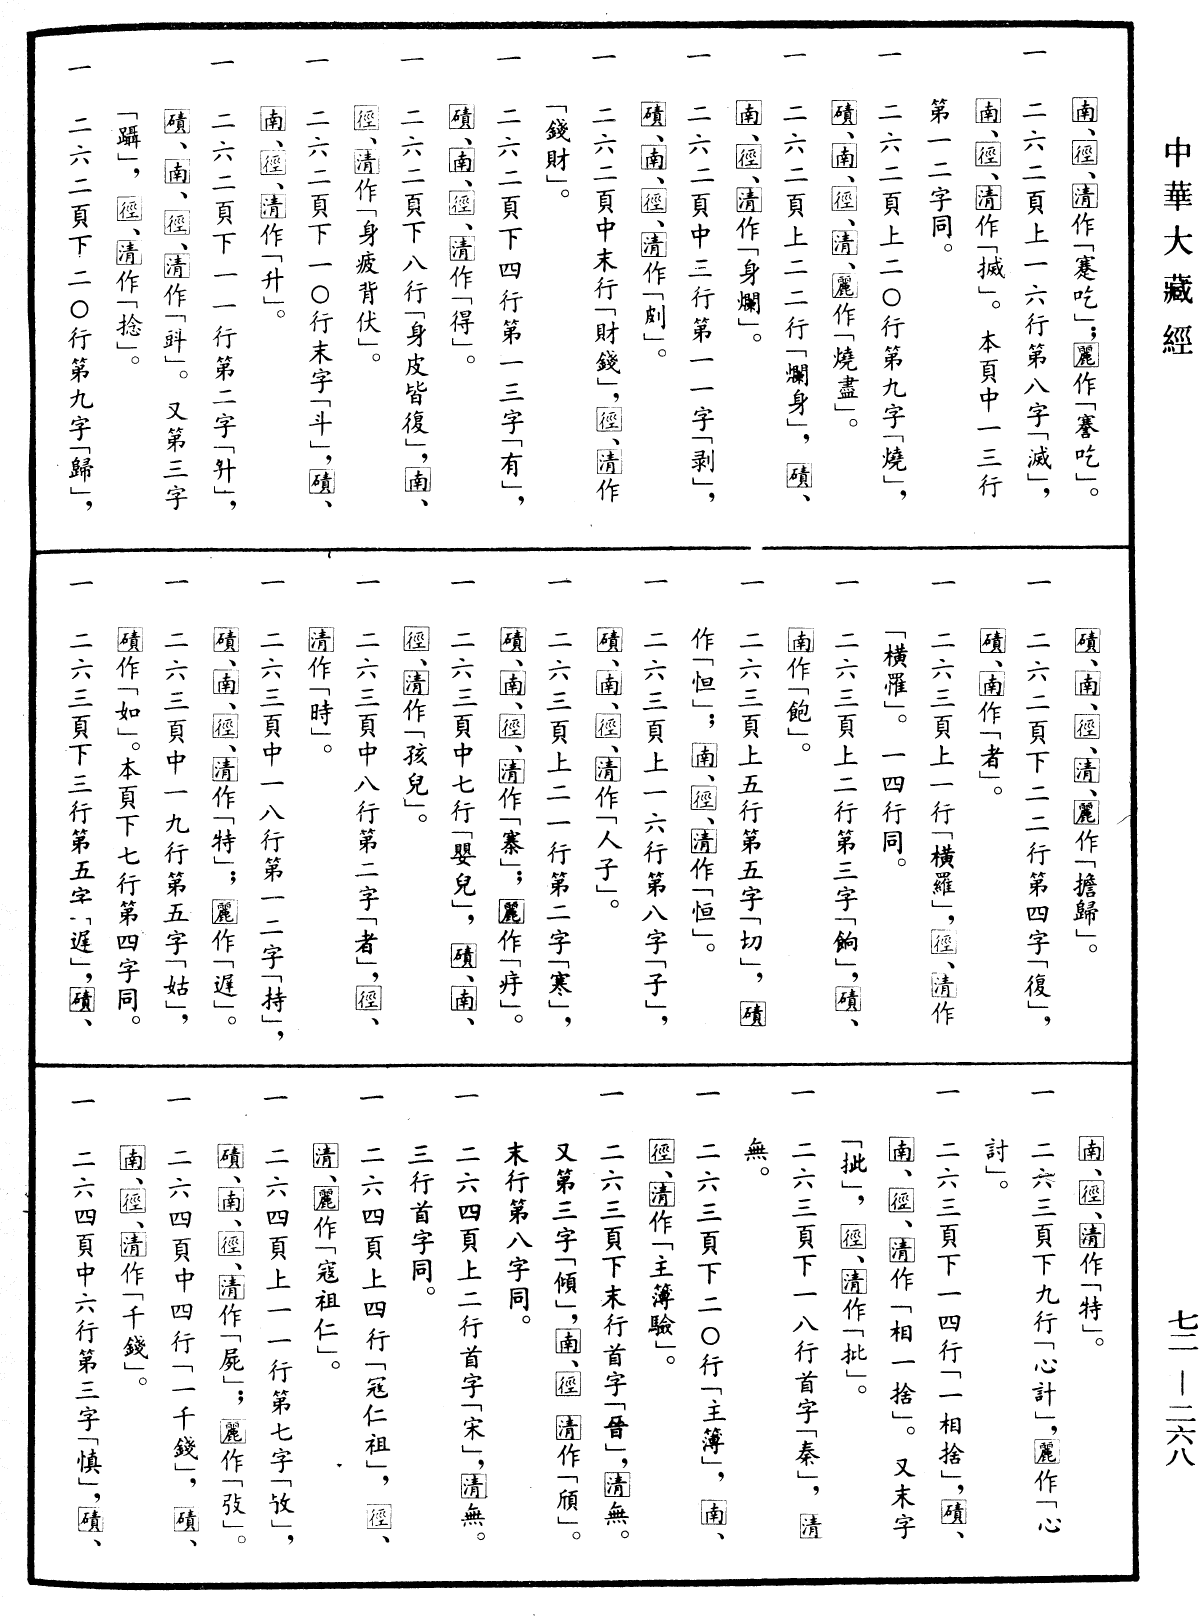 中華大藏經
南、徑、清作「蹇吃」；麗作「謇吃」。
一 二六二頁上一六行第八字「滅」，
南、徑、清作「搣」。本頁中一三行
第一二字同。
一 二六二頁上二〇行第九字「燒」，
磧、南、徑、清、麗作「燒盡」。
一 二六二頁上二二行「爛身」，磧、
南、徑、清作「身爛」。
一 二六二頁中三行第一一字「剥」，
磧、南、徑、清作「剠」。
一 二六二頁中末行「財錢」，徑、清作
「錢財」。
一 二六二頁下四行第一三字「有」，
磧、南、徑、清作「得」。
一 二六二頁下八行「身皮皆復」，南、
徑、清作「身疲背伏」。
一 二六二頁下一〇行末字「斗」，磧、
南、徑、清作「升」。
一 二六二頁下一一行第二字「㪷」，
磧、南、徑、清作「㪷」。又第三字
「躡」，徑、清作「捻」。
一 二六二頁下二〇行第九字「歸」，
磧、南、徑、清、麗作「擔歸」。
一 二六二頁下二二行第四字「復」，
磧、南作「者」。
一 二六三頁上一行「橫羅」，徑、清作
「橫罹」。一四行同。
一 二六三頁上二行第三字「餉」，磧、
南作「飽」。
一 二六三頁上五行第五字「切」，磧
作「怛」；南、徑、清作「恒」。
一 二六三頁上一六行第八字「子」，
磧、南、徑、清作「人子」。
一 二六三頁上二一行第二字「寒」，
磧、南、徑、清作「寨」；麗作「疛」。
一 二六三頁中七行「嬰兒」，磧、南、
徑、清作「孩兒」。
一 二六三頁中八行第二字「者」，徑、
清作「時」。
一 二六三頁中一八行第一二字「持」，
磧、南、徑、清作「特」；麗作「遲」。
一 二六三頁中一九行第五字「姑」，
磧作「如」。本頁下七行第四字同。
一 二六三頁下三行第五字「遲」，磧、
南、徑、清作「特」。
一 二六三頁下九行「心計」，麗作「心
討」。
一 二六三頁下一四行「一相捨」，磧、
南、徑、清作「相一捨」。又末字
「㧗」，徑、清作「批」。
一 二六三頁下一八行首字「秦」，清
無。
一 二六三頁下二〇行「主簿」，南、
徑、清作「主簿驗」。
一 二六三頁下末行首字「晉」，清無。
又第三字「傾」，南、徑 清作「頎」。
末行第八字同。
一 二六四頁上二行首字「宋」，清無。
三行首字同。
一 二六四頁上四行「寇仁祖」，徑、
清、麗作「寇祖仁」。
一 二六四頁上一一行第七字「攷」，
磧、南、徑、清作「屍」；麗作「㢮」。
一 二六四頁中四行「一千錢」，磧、
南、徑、清作「千錢」。
一 二六四頁中六行第三字「慎」，磧、
七二—二六八